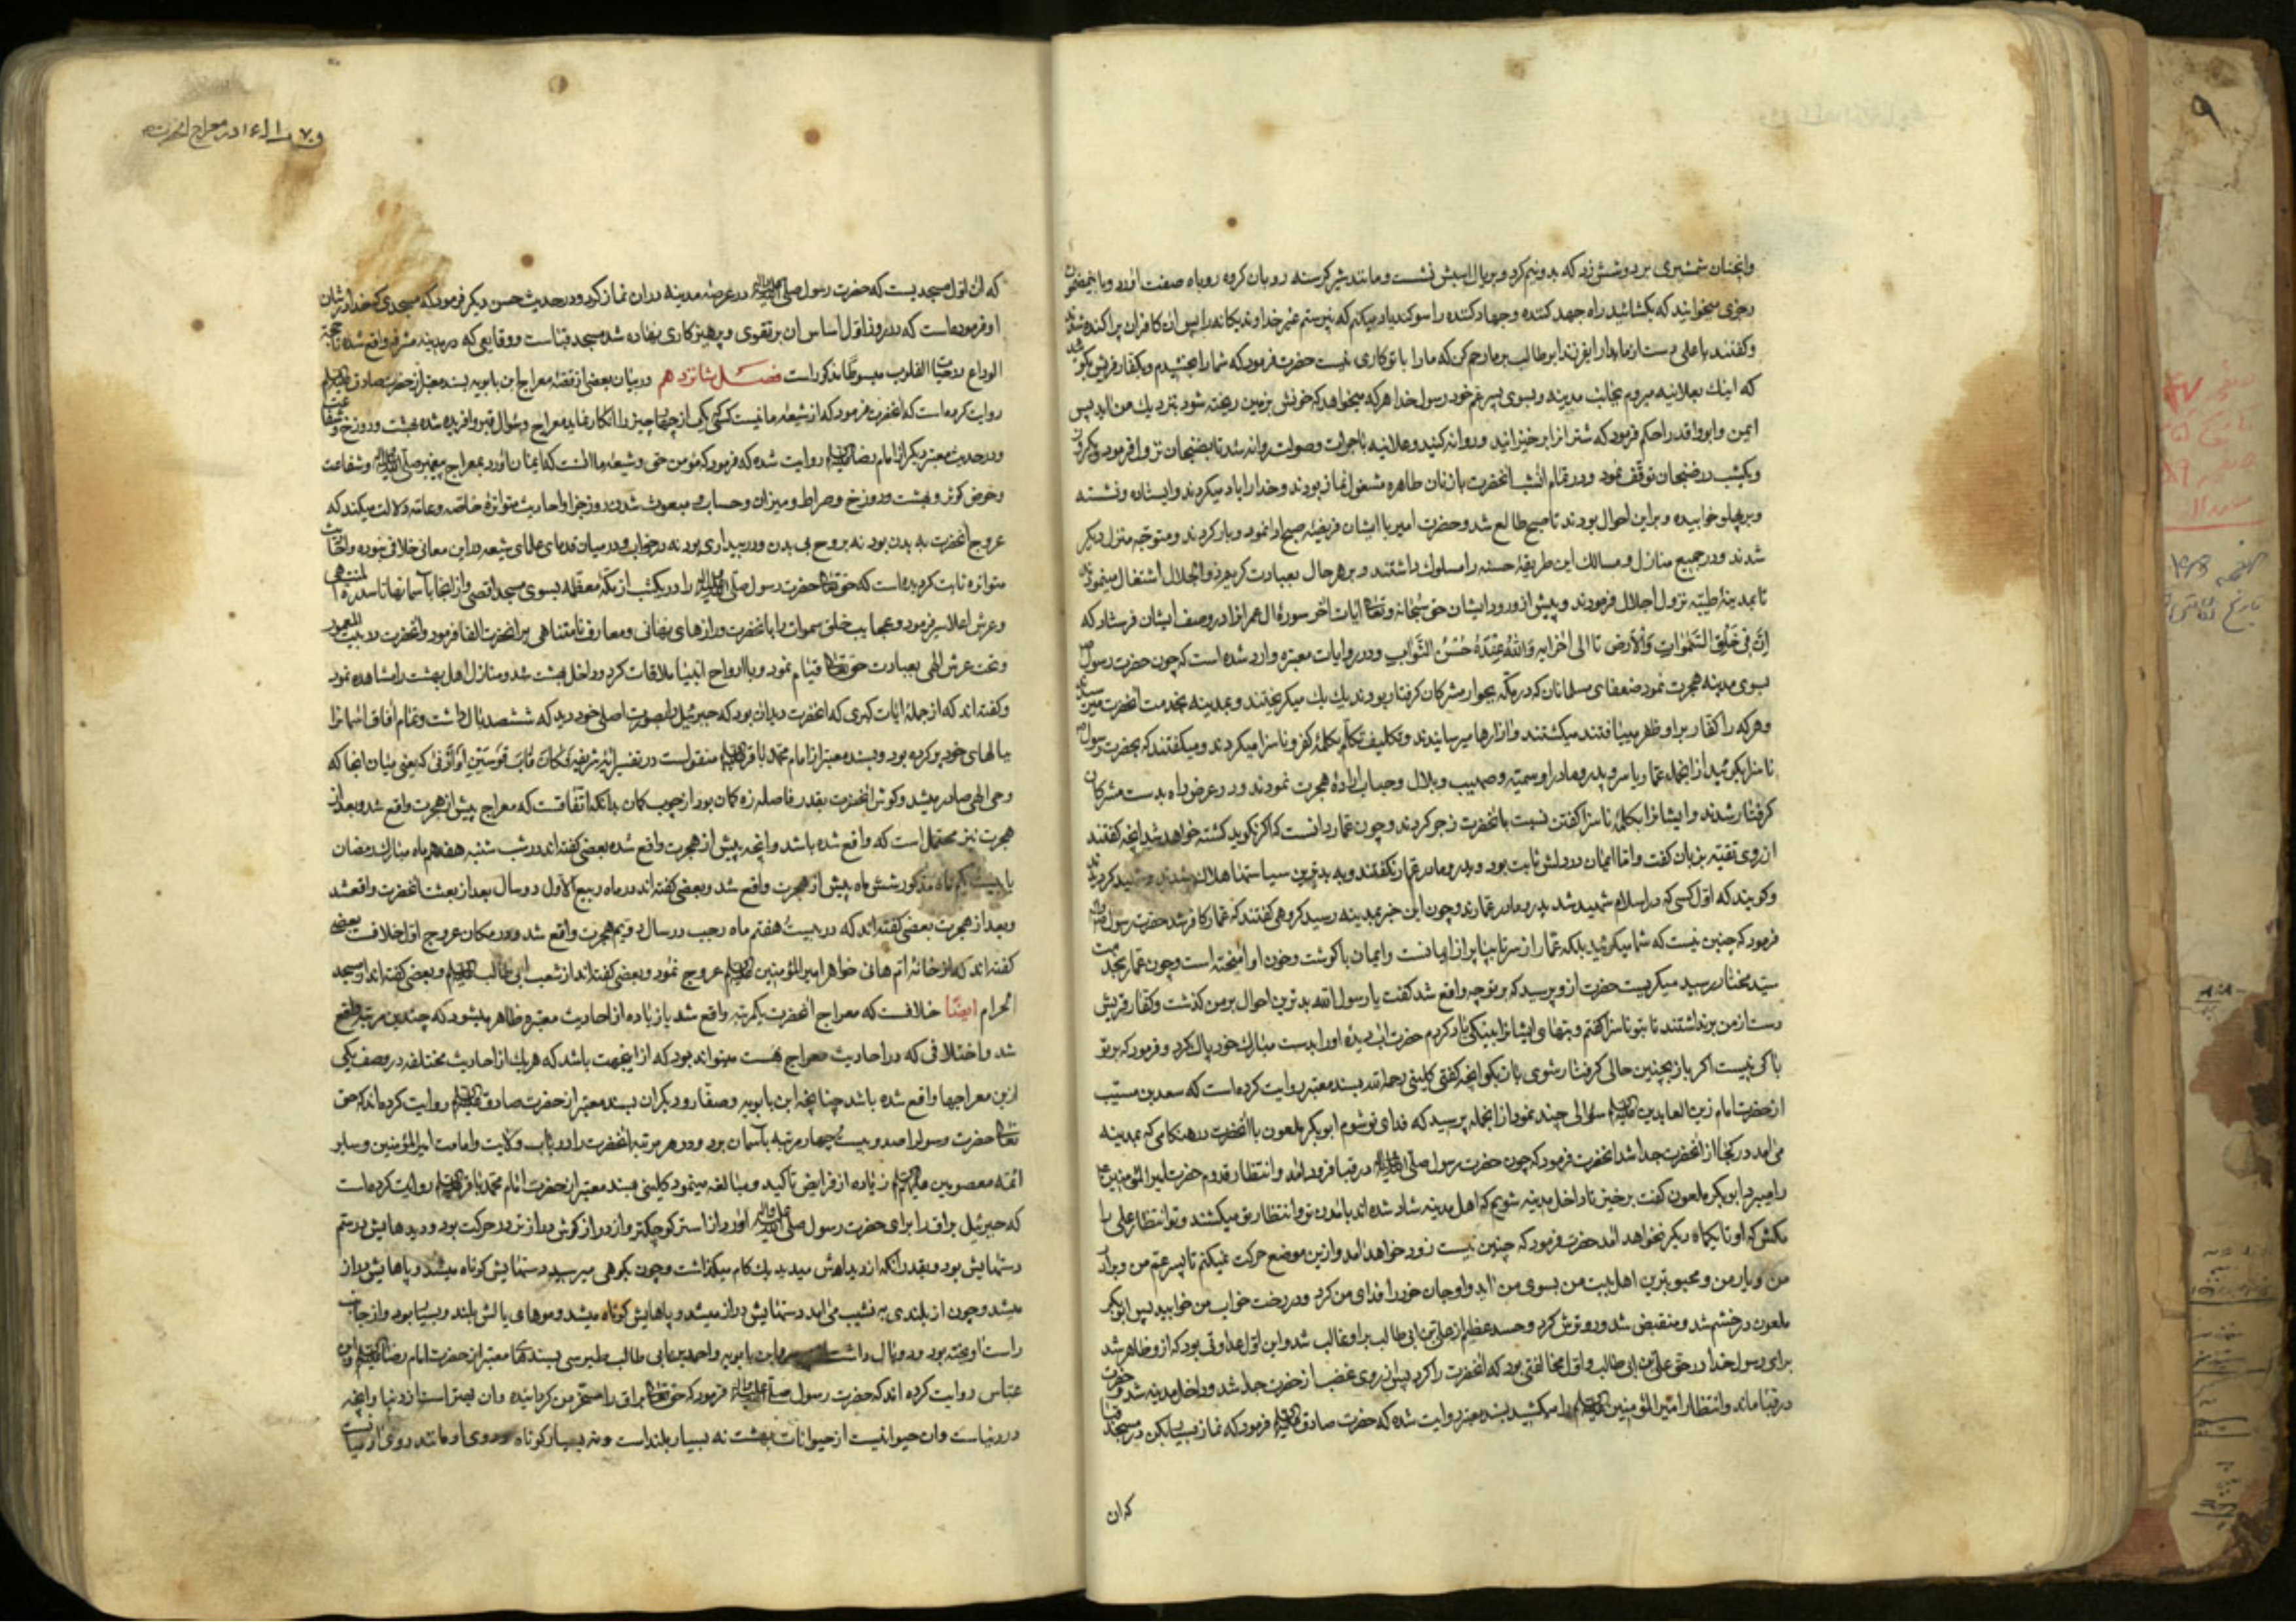 وانچنان شمشیری بر دوشش زد که بدو نیم کرد و بر یال اسبش نشست و مانند شیر گرسنه رو بان گروه روباه صفت اورد و باین مضمون
رجزی میخواندند که بکشائید راه جهد کننده و جهاد کننده را سوکند یاد میکنم که نپرستم غیر خداوند یکانه را پس ان کافران پراکنده شدند
وکفتند یا علی دست از ما بدار ایفرزند ابوطالب بر ما رحم کن که مارا با تو کاری نیست حضرت فرمود که شما را بخشیدم و بکفار قریش بکوئید
که اینک بعلانیه میروم بجانب مدینه و بسوی پسر عم خود رسول خدا هر که میخواهد که خونش بزمین ریخته شود بنزدیک من اید پس
ایمن وابوواقد را حکم فرمود که شتران را برخیزانید و روانه کنید و علانیه با جرات وصولت روانه شد تا بضجنان نزول فرمود و یکروز
ویکشب در ضجنان توقف نمود و در تمام انشب انحضرت با زنان طاهره مشغول نماز بودند و خدا را یاد میکردند وایستاده ونشسته
وبر پهلو خوابیده و براین احوال بودند تا صبح طالع شد وحضرت امیر با ایشان فریضهٔ صبح ادا نمود و بار کردند ومتوجه منزل دیکر
شدند ودر جمیع منازل و مسالک این طریقهٔ حسنه را مسلوک داشتند و بر هر حال بعبادت کریم ذو الجلال اشتغال مینمودند
تا بمدینهٔ طیبه نزول اجلال فرمودند و پیش از ورود ایشان حق سبحانه وتعالی ایات اخر سورهٔ ال عمران را در وصف ایشان فرستاد که
اِنَّ فی خَلْقِ السَّمٰوٰاتِ وَالْاَرْضِ تا الی اخرایه وَاللهُ عِنْدَهُ حُسْنُ الثَّوٰابِ ودر روایات معتبره وارد شده است که چون حضرت رسول ص
بسوی مدینه هجرت نمود ضعفای مسلمانان که در مکه بجوار مشرکان کرفتار بودند یک یک میکریختند و بمدینه بخدمت انحضرت میرسیدند
وهر که را کفار بر او ظفر مییافتند میکشتند وازارها میرسانیدند وتکلیف تکلم بکلمهٔ کفر و ناسزا میکردند ومیکفتند که بحضرت رسول ص
ناسزا بکوئید از انجمله عمار ویاسر و پدر ومادر او سمیه وصهیب وبلال وخباب ارادهٔ هجرت نمودند و در عرض راه بدست مشرکان
کرفتار شدند وایشانرا بکلمهٔ ناسزا کفتن نسبت بانحضرت زجر کردند و چون عمار دانست که اکر نکوید کشته خواهد شد انچه کفتند
از روی تقیه بزبان کفت واما ایمان در دلش ثابت بود و پدر ومادر عمار نکفتند وبه بدترین سیاستها هلاک شدند و شهید کردیدند
وکویند که اول کسی که در اسلام شهید شد پدر ومادر عمارند وچون این خبر بمدینه رسید کروهی کفتند که عمار کافر شد حضرت رسول ص
فرمود که چنین نیست که شما میکوئید بلکه عمار از سر تا بپا پر از ایمانست وایمان با کوشت وخون او امیخته است وچون عمار بخدمت
سید مختار رسید میکریست حضرت ازو پرسید که بر تو چه واقع شد کفت یا رسول الله بدترین احوال بر من کذشت وکفار قریش
دست از من برنداشتند تا بتو ناسزا کفتم و بتهای ایشانرا بنیکی یاد کردم حضرت اب دیده او را بدست مبارک خود پاک کرد و فرمود که بر تو
باکی نیست اکر باز بچنین حالی کرفتار شوی باز بکو انچه کفتی کلینی رحمه الله بسند معتبر روایت کرده است که سعد بن مسیب
از حضرت امام زین العابدین علیه السلام سؤالی چند نمود از انجمله پرسید که فدای تو شوم ابوبکر ملعون با انحضرت در هنکامی که بمدینه
می امد در کجا از انحضرت جدا شد انحضرت فرمود که چون حضرت رسول صلی الله علیه واله در قبا فرود امد وانتظار قدوم حضرت امیر المؤمنین ع
را میبرد ابوبکر ملعون کفت برخیز تا داخل مدینه شویم که اهل مدینه شاد شده اند بامدن تو وانتظار تو میکشند وتو انتظار علی را
مکش که او تا یکماه دیکر نخواهد امد حضرت فرمود که چنین نیست زود خواهد امد وازین موضع حرکت نمیکنم تا پسر عم من وبرادر
من ویار من ومحبوبترین اهل بیت من بسوی من اید واو جان خود را فدای من کرد ودر رخت خواب من خوابید پس ابوبکر
ملعون در خشم شد ومنقبض شد ورو ترش کرد وحسد عظیم از علی بن ابی طالب بر او غالب شد واین اول عداوتی بود که از و ظاهر شد
برای رسول خدا در حق علی بن ابی طالب واول مخالفتی بود که انحضرت را کرد پس از روی غضب از حضرت جدا شد وداخل مدینه شد وحضرت
در قبا ماند وانتظار امیر المؤمنین علیه السلام را میکشید بسند معتبر روایت شده که حضرت صادق علیه السلام فرمود که نماز بسیار بکن در مسجد قبا
که ان
در معراج انحضرت
که ان اول مسجدیست که حضرت رسول صلی الله علیه واله در عرصهٔ مدینه در ان نماز کرد ودر حدیث حسن دیکر فرمود که مسجدی که خدا در شان
او فرموده است که در روز اول اساس ان بر تقوی و پرهیزکاری نهاده شد مسجد قباست ووقایعی که در مدینه مشرفه واقع شده تا حجة
الوداع در حیات القلوب مبسوطا مذکور است فصـــل شانزدهم در بیان بعضی از قصهٔ معراج ابن بابویه بسند معتبر از حضرت صادق علیه السلام
روایت کرده است که انحضرت فرمود که از شیعهٔ ما نیست کسی که یکی از چهار چیز را انکار نماید معراج وسؤال قبر وافریده شده بهشت ودوزخ وشفاعت
ودر حدیث معتبر دیکر از امام رضا علیه السلام روایت شده که فرمود که مؤمن حق وشیعهٔ ما انست که ایمان اورد بمعراج پیغمبر صلی الله علیه واله وشفاعت
وحوض کوثر و بهشت ودوزخ وصراط ومیزان وحساب و مبعوث شدن روز جزا واحادیث متواترهٔ خاصه وعامه دلالت میکند که
عروج انحضرت به بدن بود نه بروح بی بدن ودر بیداری بود نه در خواب ودر میان قدمای علمای شیعه در این معانی خلافی نبوده واحادیث
متواتره ثابت کردیده است که حق تعالی حضرت رسول صلی الله علیه واله را در یکشب از مکه معظمه بسوی مسجد اقصی واز انجا باسمانها تا سدرة المنتهی
وعرش اعلا سیر فرمود وعجایب خلق سموات را بانحضرت ورازهای نهانی ومعارف نامتناهی بر انحضرت القا فرمود وانحضرت در بیت المعمور
وتحت عرش الهی بعبادت حق تعالی قیام نمود و با ارواح انبیا ملاقات کرد وداخل بهشت شد ومنازل اهل بهشت را مشاهده نمود
وکفته اند که از جملهٔ ایات کبری که انحضرت دید ان بود که جبرئیل را بصورت اصلی خود دید که ششصد بال داشت وتمام افاق اسمانرا
ببالهای خود پر کرده بود وبسند معتبر از امام محمد باقر علیه السلام منقولست در تفسیر ایهٔ شریفه فَکٰانَ قٰابَ قَوسَیْنِ اَوْ اَدْنیٰ که یعنی میان انجا که
وحی الهی صادر میشد وکوش انحضرت بقدر فاصله زه کمان بود از چوب کمان بدانکه اتفاقست که معراج پیش از هجرت واقع شد وبعد از
هجرت نیز محتمل است که واقع شده باشد وانچه پیش از هجرت واقع شده بعضی کفته اند در شب شنبه هفدهم ماه مبارک رمضان
یا بیست یکم ماه مذکور شش ماه پیش از هجرت واقع شد وبعضی کفته اند در ماه ربیع الاول دو سال بعد از بعثت انحضرت واقعشد
وبعد از هجرت بعضی کفته اند که در بیست هفتم ماه رجب در سال دویم هجرت واقع شد ودر مکان عروج اول خلافست بعضی
کفته اند که از خانهٔ ام هانی خواهر امیر المؤمنین علیه السلام عروج نمود وبعضی کفته اند از شعب ابی طالب علیه السلام وبعضی کفته اند از مسجد
الحرام ایضا خلافست که معراج انحضرت یکمرتبه واقع شد یا زیاده از احادیث معتبره ظاهر میشود که چندین مرتبه واقع
شد واختلافی که در احادیث معراج هست میتواند بود که از اینجهت باشد که هر یک از احادیث مختلفه در وصف یکی
ازین معراجها واقع شده باشد چنانچه ابن بابویه وصفار ودیکران بسند معتبر از حضرت صادق علیه السلام روایت کرده اند که حق
تعالی حضرت رسول را صد و بیست وچهار مرتبه باسمان برد ودر هر مرتبه انحضرت را در باب ولایت وامامت امیر المؤمنین وسایر
ائمه معصومین علیهم السلام زیاده از فرایض تاکید و مبالغه مینمود کلینی بسند معتبر از حضرت امام محمد باقر علیه السلام روایت کرده است
که جبرئیل براق را برای حضرت رسول صلی الله علیه واله اورد از استر کوچکتر واز دراز کوش دراز تر در حرکت بود ودیدهایش در سم
دستهایش بود وبقدر انکه از دیده اش میدید یک کام میکذاشت وچون بکوهی میرسید دستهایش کوتاه میشد وپاهایش دراز
میشد وچون از بلندی به نشیب می امد دستهایش دراز میشد و پاهایش کوتاه میشد وموهای یالش بلند وبسیار بود واز جانب
راست اویخته بود ودو بال داشت ابن بابویه واحمد بن ابی طالب طبرسی بسندهای معتبر از حضرت امام رضا علیه السلام وابن
عباس روایت کرده اند که حضرت رسول صلی الله علیه واله فرمود که حق تعالی براق را مسخر من کردانیده وان بهتر است از دنیا وانچه
در دنیاست وان حیوانیست از حیوانات بهشت نه بسیار بلند است ونه بسیار کوتاه وروی او مانند روی